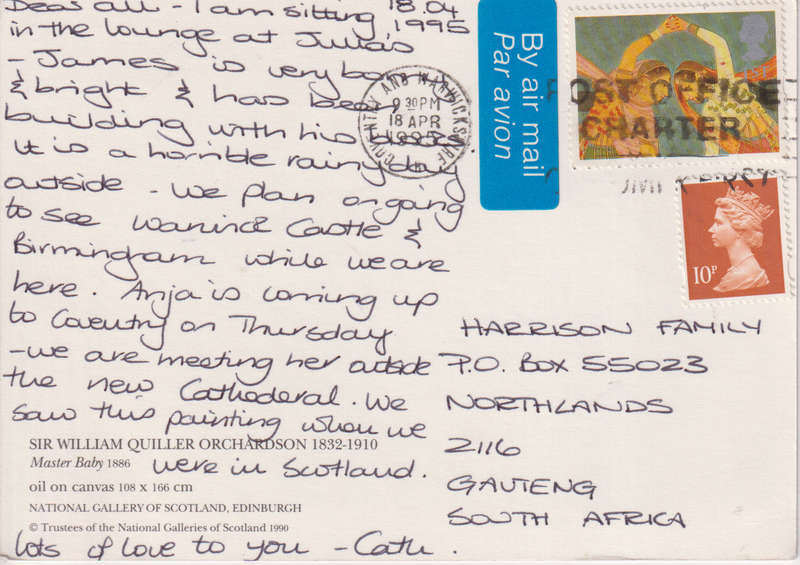 Dear all - I am sitting 18.04
in the lounge at Julia's 1995
- James is very bonny
& bright & has been
building with his
It is a horrible rainy day
outside - we plan on going
to see Warwick Castle &
Birmingham while we are
here. Anja is coming up
to Coventry on Thursday
- we are meeting her outside
the new Cathederal. We
saw this painting when we
were in Scotland.
lots of love to you - Cath.
SIR WILLIAM QUILLER ORCHARDSON 1832-1910
Master Baby 1886
oil on canvas 108 x 166 cm
NATIONAL GALLERY OF SCOTLAND, EDINBURGH
© Trustees of the National Galleries of Scotland 1990
COVENTRY AND WARWICKSHIRE
9 30PM
18 APR
1995
By air mail
Par avion
POST OFFICE
CHARTER
10P
HARRISON FAMILY
P.O. BOX 55023
NORTHLANDS
2116
GAUTENG
SOUTH AFRICA